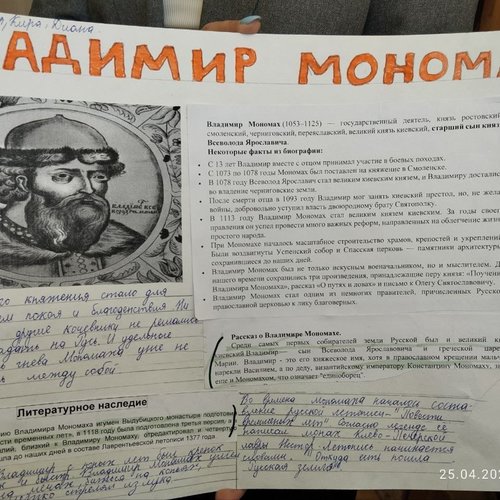 Кира, Диана
ВЛАДИМИР МОНОМА
Владимир Мономах (1053–1125) — государственный деятель, князь ростовский
смоленский, черниговский, переяславский, великий князь киевский, старший сын княз
Всеволода Ярославича.
Некоторые факты из биографии:
• С 13 лет Владимир вместе с отцом принимал участие в боевых походах.
• С 1073 по 1078 годы Мономах был поставлен на княжение в Смоленске.
• В 1078 году Всеволод Ярославич стал великим киевским князем, и Владимиру достались
во владение черниговские земли.
• После смерти отца в 1093 году Владимир мог занять киевский престол, но, не желая
войны, добровольно уступил власть двоюродному брату Святополку.
• В 1113 году Владимир Мономах стал великим киевским князем. За годы своего
правления он успел провести много важных реформ, направленных на облегчение жизни
простого народа.
• При Мономахе началось масштабное строительство храмов, крепостей и укреплений
Были воздвигнуты Успенский собор и Спасская церковь — памятники архитектуры,
сохранившиеся до наших дней.
• Владимир Мономах был не только искусным военачальником, но и мыслителем. До
нашего времени сохранились три произведения, принадлежащие перу князя: «Поучение
Владимира Мономаха», рассказ «О путях и ловах» и письмо к Олегу Святославовичу.
• Владимир Мономах стал одним из немногих правителей, причисленных Русской
православной церковью к лику благоверных.
княжения стало для
покоя и благоденствия Ни
другие кочевники не решались
на Русь. И удельные
гнева Мономаха уже не
между собой
Рассказ о Владимире Мономахе.
Среди самых первых собирателей земли Русской был и великий кн
киевский Владимир — сын Всеволода Ярославича и греческой царев
Марии. Владимир - это его княжеское имя, хотя в православном крещении мальчи
нарекли Василием, а по деду, византийскому императору Константину Мономаху, зв
еще и Мономахом, что означает "единоборец"
Литературное наследие
Владимира Мономаха игумен Выдубицкого монастыря подготовил
вести временных лет», в 1118 году была подготовлена третья версия
близкий к Владимиру Мономаху, отредактировал и
до наших дней в составе Лаврентьевской летописи 1377 года
Владимир с юных лет был
Владимир
на конях,
стрелял из лука
Во времена мономаха началось соста
вление русской летописи-"Повести
временных лет" Согласно легенде её
написал монах Киево-Печерской
лавры Нестор Летопись начинается
словами. " Откуда есть пошла
Русская земля".
25.04.20